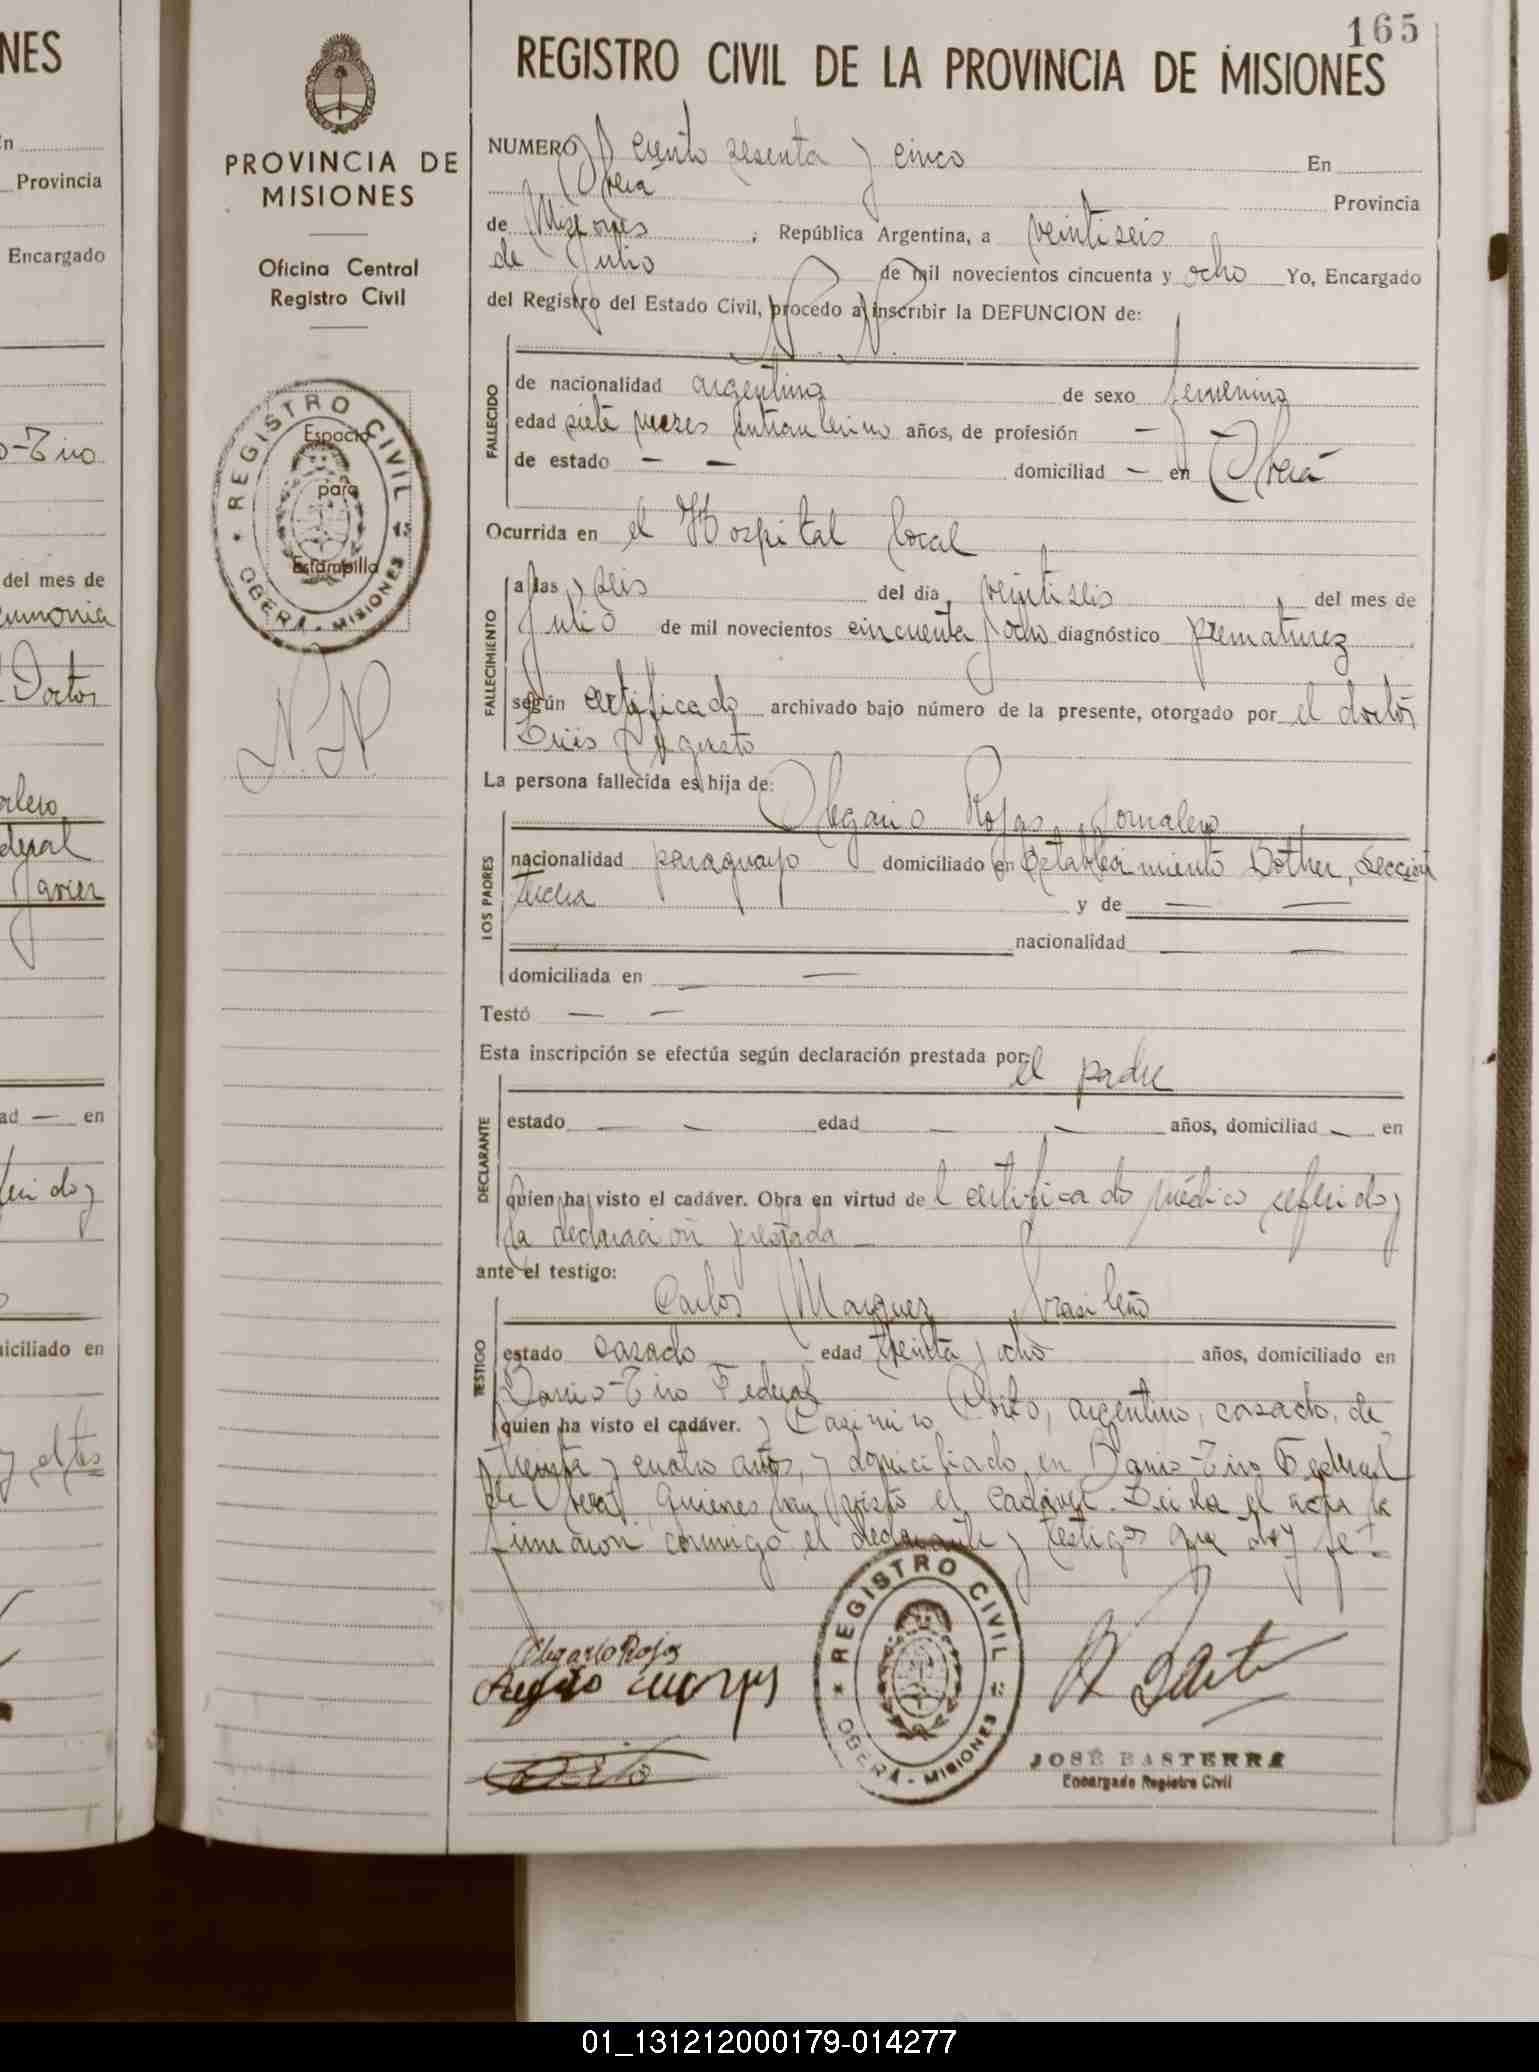 165
REGISTRO CIVIL DE LA PROVINCIA DE MISIONES
PROVINCIA DE
MISIONES
Oficina Central
Registro Civil
REGISTRO CIVIL
OBERA - MISIONES
Espacio
para
Estampilla
N.N.
NUMERO ciento sesenta y cinco En
Oberá Provincia
de Misiones ; República Argentina, a veintiseis
de Julio de mil novecientos cincuenta y ocho Yo, Encargado
del Registro del Estado Civil, procedo a inscribir la DEFUNCION de:
N. N.
FALLECIDO
de nacionalidad argentina de sexo femenino
edad siete meses intrauterino años, de profesión —
de estado — — domiciliad — en Oberá
Ocurrida en el Hospital local
FALLECIMIENTO
a las seis del dia veintiseis del mes de
Julio de mil novecientos cincuenta y ocho diagnóstico prematurez
según certificado archivado bajo número de la presente, otorgado por el doctor
Luis Augusto
La persona fallecida es hija de:
Olegario Rojas, jornalero
LOS PADRES
nacionalidad paraguayo domiciliado en Establecimiento Bother, Sección
y de — —
nacionalidad — —
domiciliada en — —
Testó — —
Esta inscripción se efectúa según declaración prestada por: el padre
DECLARANTE
estado — — edad — — años, domiciliad — en
quien ha visto el cadáver. Obra en virtud del certificado médico referido y
la declaración prestada —
ante el testigo:
Carlos Marquez brasileño
TESTIGO
estado casado edad treinta y ocho años, domiciliado en
Barrio-Tiro Federal
quien ha visto el cadáver. y Casimiro argentino, casado, de
treinta y cuatro años, y domiciliado en Barrio-Tiro Federal
de Oberá, quienes han visto el cadáver. Leída el acta la
firmaron conmigo el declarante y testigos que doy fe.-
Olegario Rojas
REGISTRO CIVIL
OBERA - MISIONES
JOSÉ BASTERRA
Encargado Registro Civil
NES
En
Provincia
Encargado
o-Tiro
del mes de
eumonia
Doctor
Javier
ad — en
ferido y
iciliado en
01_131212000179-014277